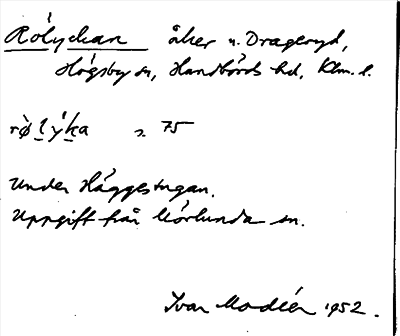 Rölyckan åker u. Drageryd,
Högsby sn, Handbörds hd, Klm. l.
rø̀lýka s. 75
Under Häggestugan.
Uppgift från Mörlunda sn.
Ivar Modéer 1952.